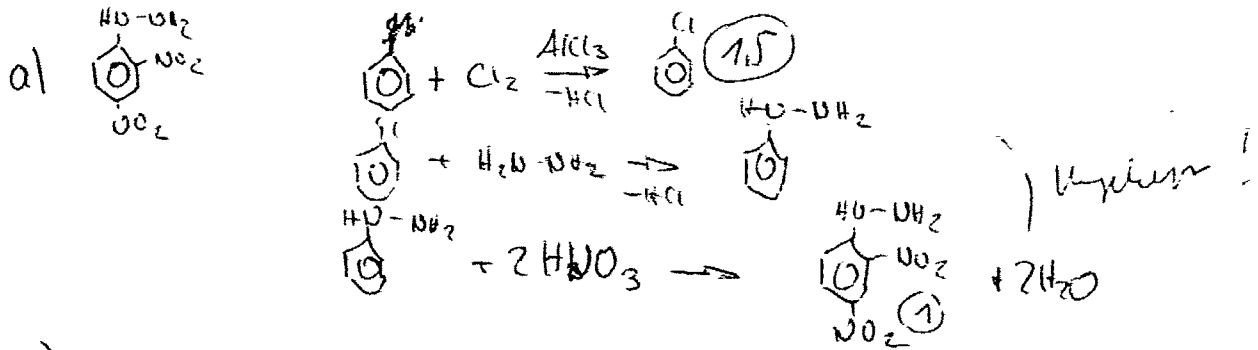 HN-NH2
a) NO2
NO2
+ Cl2 AlCl3 -HCl Cl 1,5
Cl + H2N-NH2 -HCl HN-NH2
HN-NH2 + 2HNO3 HN-NH2 NO2 NO2 1 + 2H2O